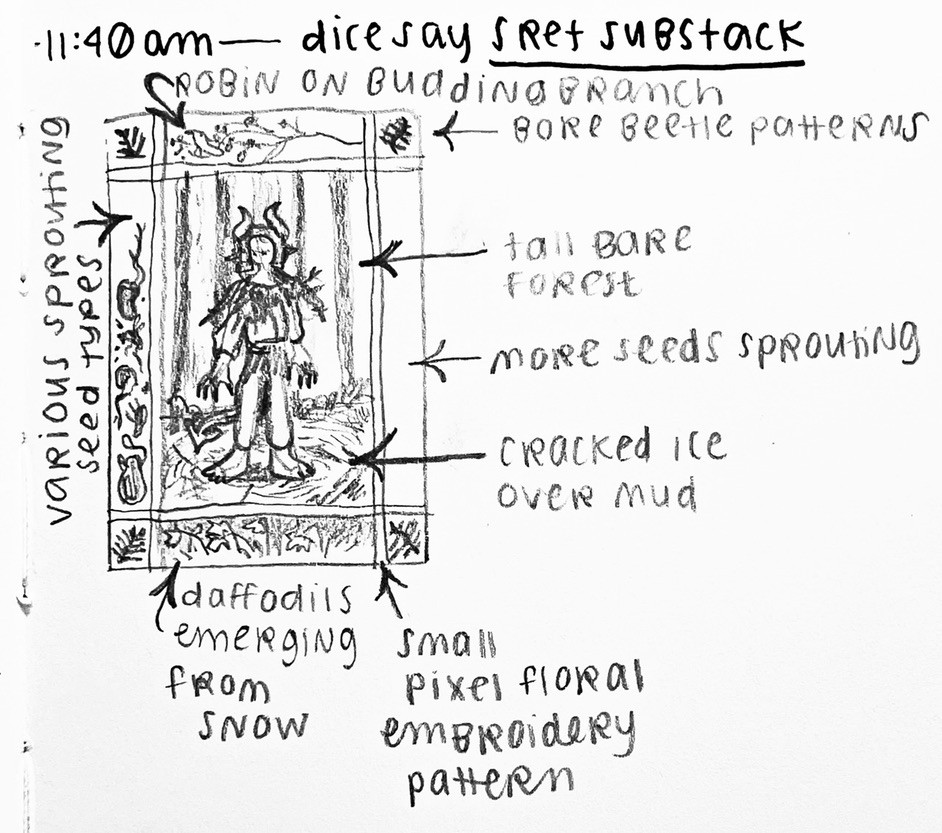 ·11:40am — dice say SRET SUBSTACK
ROBIN ON BUDDING BRANCH
BORE BEETLE PATTERNS
VARIOUS SPROUTING
SEED TYPES
tall BARE
FOREST
MORE SEEDS SPROUTING
CRACKED ICE
OVER MUD
daffodils
EMERGING
FROM
SNOW
small
pixel floral
EMBROIDERY
pattern